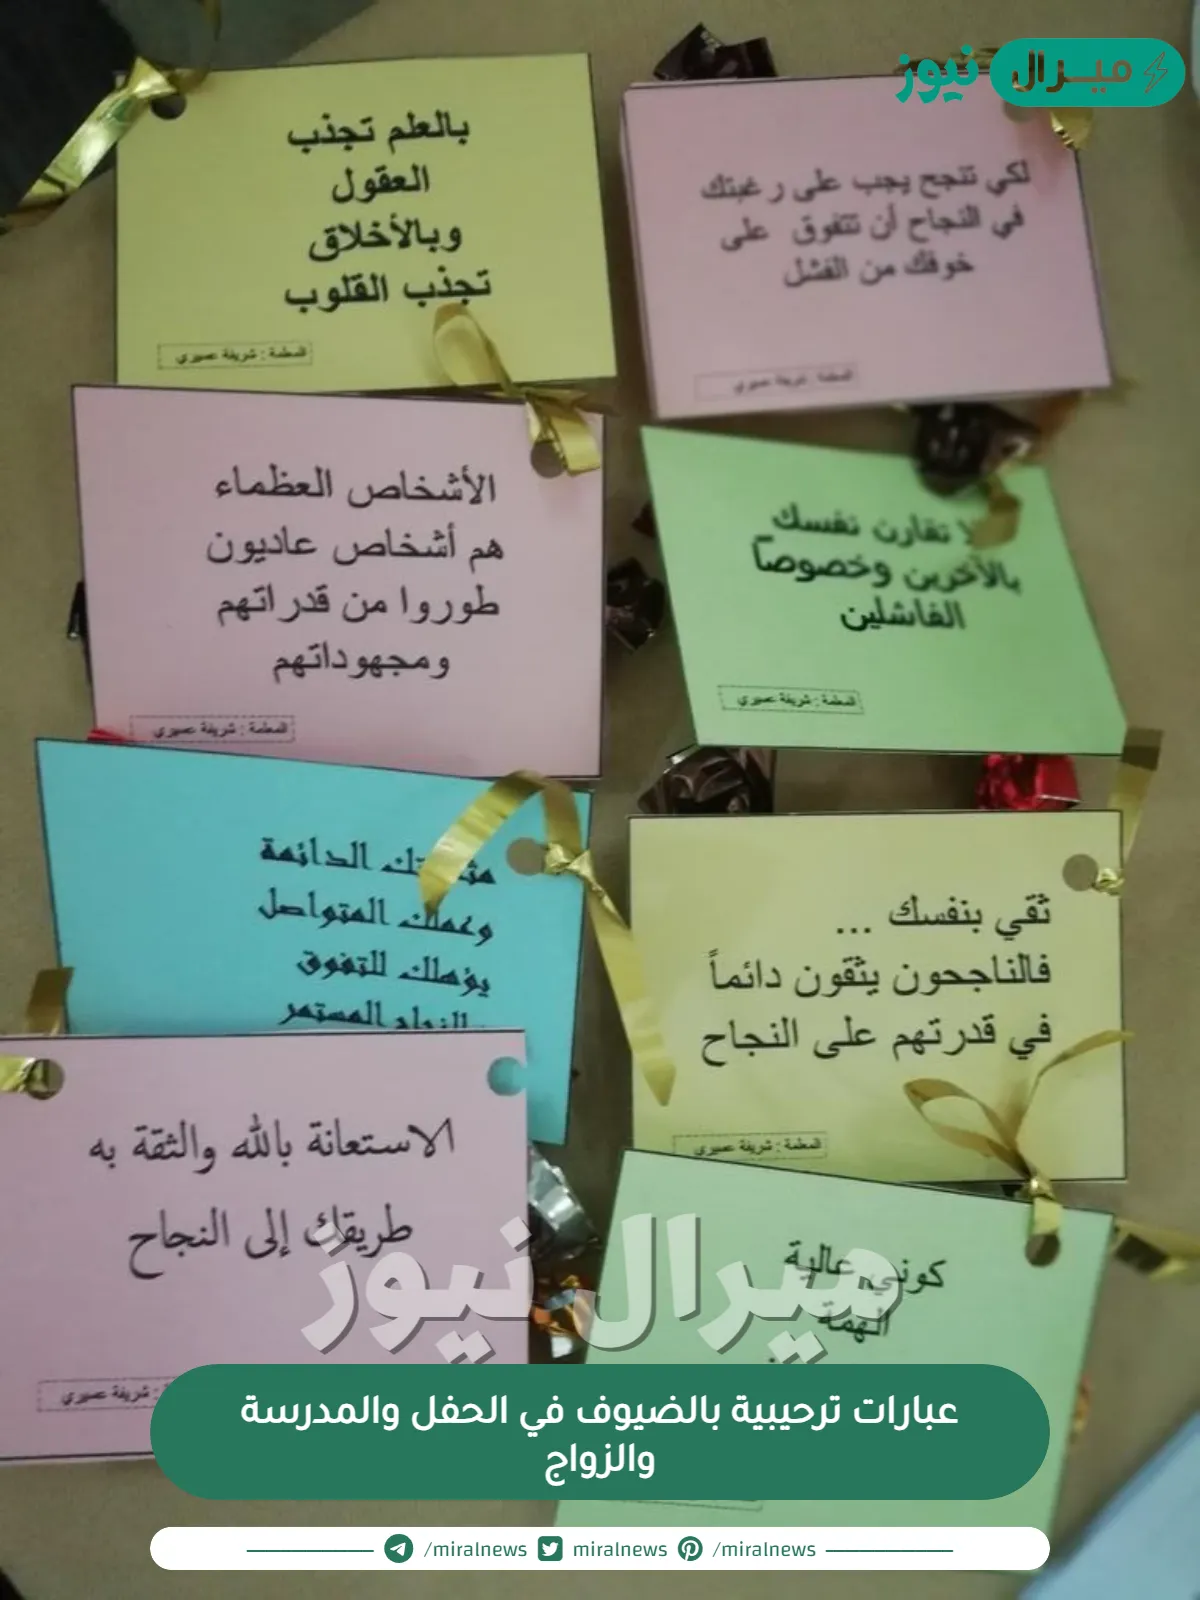 ميرال نيوز
بالعلم تجذب
العقول
وبالأخلاق
تجذب القلوب
المعلمة : شريفة عسيري
لكي تنجح يجب على رغبتك
في النجاح أن تتفوق على
خوفك من الفشل
المعلمة : شريفة عسيري
الأشخاص العظماء
هم أشخاص عاديون
طوروا من قدراتهم
ومجهوداتهم
المعلمة : شريفة عسيري
لا تقارن نفسك
بالآخرين وخصوصاً
الفاشلين
المعلمة : شريفة عسيري
الدائمة
وعملك المتواصل
يؤهلك للتفوق
والنجاح المستمر
ثقي بنفسك ...
فالناجحون يثقون دائماً
في قدرتهم على النجاح
المعلمة : شريفة عسيري
الاستعانة بالله والثقة به
طريقك إلى النجاح
: شريفة عسيري
كوني عالية
الهمة
ميرال نيوز
عبارات ترحيبية بالضيوف في الحفل والمدرسة
والزواج
/miralnews miralnews /miralnews